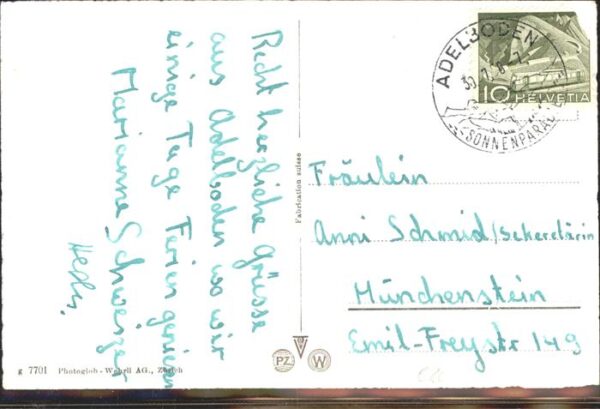 Recht herzliche Grüsse
aus Adelboden wo wir
einige Tage Ferien
Marianne Schweizer
Fabrication suisse
g 7701 Photoglob-Wehrli AG., Zürich
PZ
W
ADELBODEN
30.7.
SONNENPARAD
10 HELVETIA
Fräulein
Anni Schmid/Sekretärin
Münchenstein
Emil-Freystr 149